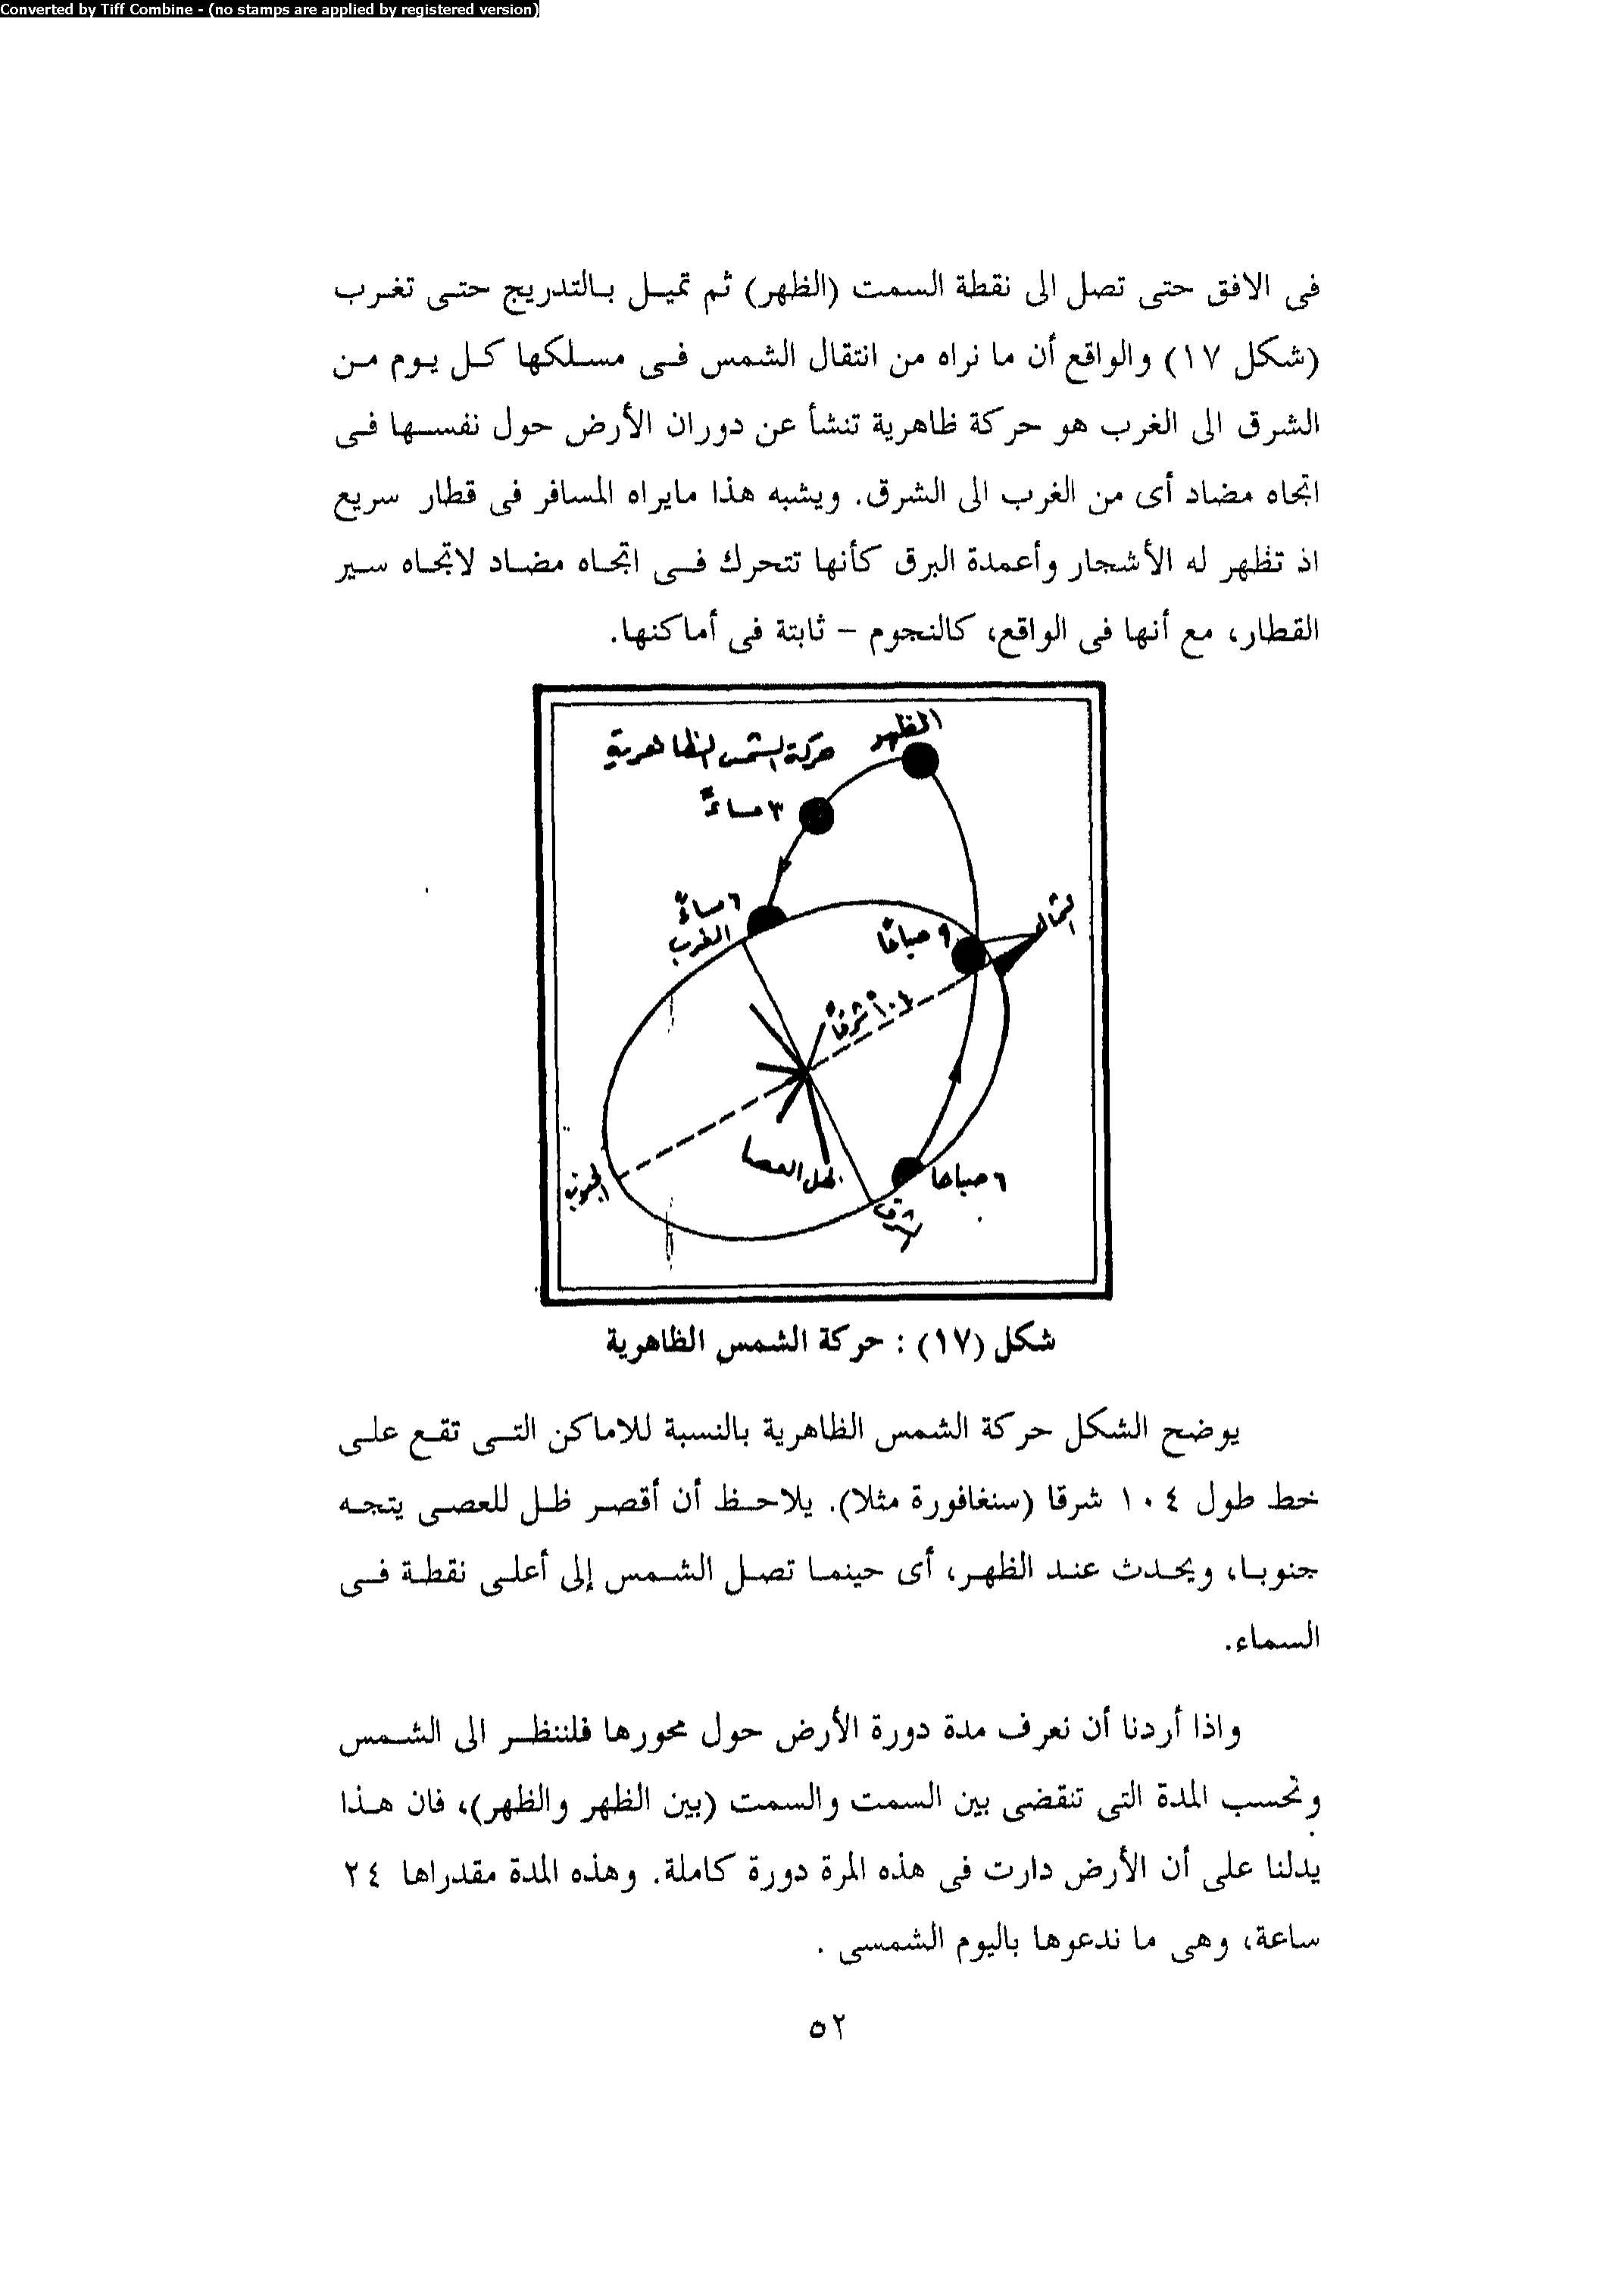 Converted by Tiff Combine - (no stamps are applied by registered version)
فى الافق حتى تصل الى نقطة السمت (الظهر) ثم تميل بالتدريج حتى تغرب
(شكل ١٧) والواقع أن ما نراه من انتقال الشمس فى مسلكها كل يوم من
الشرق الى الغرب هو حركة ظاهرية تنشأ عن دوران الأرض حول نفسها فى
اتجاه مضاد أى من الغرب الى الشرق. ويشبه هذا مايراه المسافر فى قطار سريع
اذ تظهر له الأشجار وأعمدة البرق كأنها تتحرك فى اتجاه مضاد لاتجاه سير
القطار، مع أنها فى الواقع، كالنجوم – ثابتة فى أماكنها.
الظهر
حركة الشمس الظاهرية
٣ مساءً
٦ مساءً
الغرب
٩ صباحًا
الشمال
١٠٤° شرقًا
ظل العصا
الجنوب
٦ صباحا
الشرق
شكل (١٧) : حركة الشمس الظاهرية
يوضح الشكل حركة الشمس الظاهرية بالنسبة للاماكن التى تقع على
خط طول ١٠٤ شرقا (سنغافورة مثلا). يلاحظ أن أقصر ظل للعصى يتجه
جنوبا، ويحدث عند الظهر، أى حينما تصل الشمس إلى أعلى نقطة فى
السماء.
واذا أردنا أن نعرف مدة دورة الأرض حول محورها فلننظر الى الشمس
ونحسب المدة التى تنقضى بين السمت والسمت (بين الظهر والظهر)، فان هذا
يدلنا على أن الأرض دارت فى هذه المرة دورة كاملة. وهذه المدة مقدراها ٢٤
ساعة، وهى ما ندعوها باليوم الشمسى .
٥٢